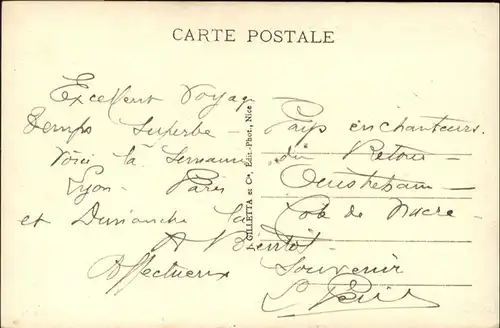 CARTE POSTALE
Excellent Voyage
temps superbe -
Voici la Semaine
Lyon - Paris
et Dimanche
A Bientôt
Affectueux
GILLETTA et Cie, Édit.-Phot., Nice
Pays enchanteurs
du Retour
Ouistreham
Côte de Nacre
Souvenir